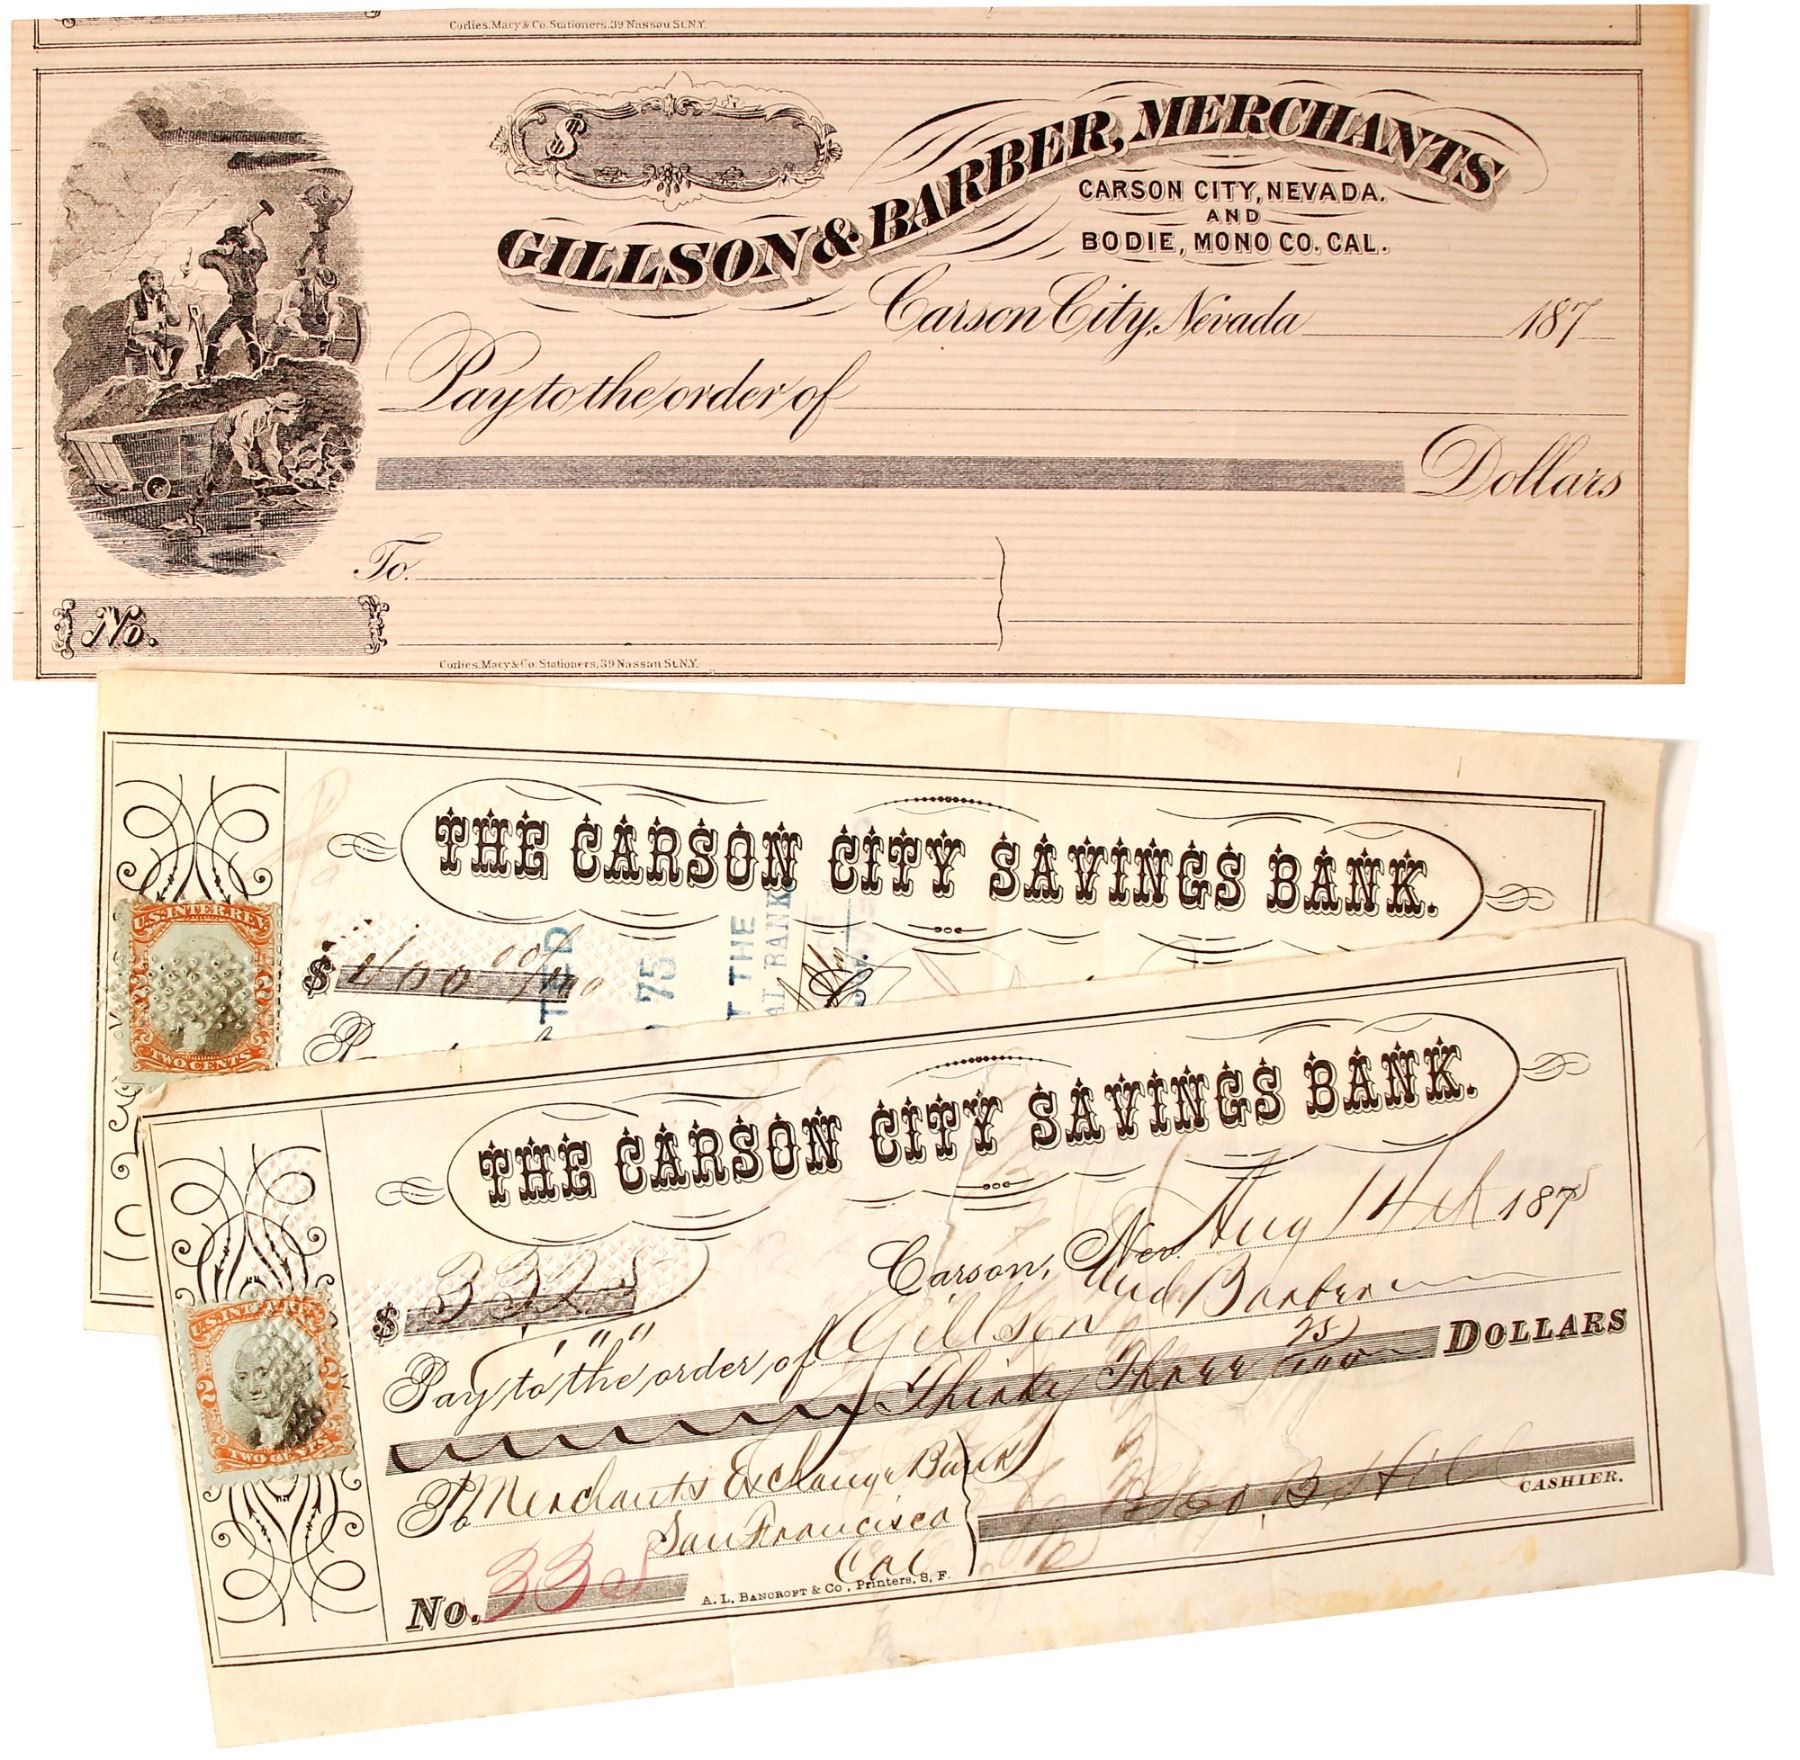 Corlies, Macy & Co. Stationers, 39 Nassau St. N.Y.
$
GILLSON & BARBER, MERCHANTS
CARSON CITY, NEVADA.
AND
BODIE, MONO CO. CAL.
Carson City, Nevada 187
Pay to the order of
Dollars
To.
No.
Corlies, Macy & Co. Stationers, 39 Nassau St. N.Y.
THE CARSON CITY SAVINGS BANK.
U.S. INTER. REV.
TWO CENTS
$ 400 00/100
TED
75
T THE
AL BANK
THE CARSON CITY SAVINGS BANK.
Carson, Nev. Aug 14th 1875
$ 33 25
Pay to the order of Gillson And Barber
Thirty Three 25/100 DOLLARS
U.S. INTER. REV.
2 2
TWO CENTS
To Merchants Exchange Bank
San Francisco
Cal
CASHIER.
No. 335
A. L. BANCROFT & Co, Printers, S. F.